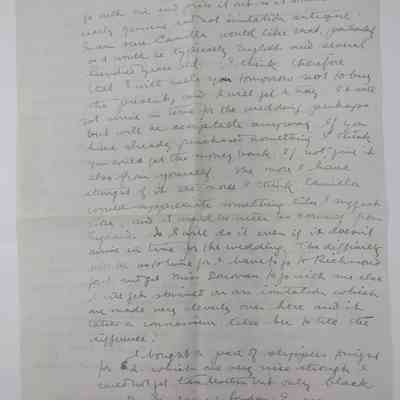 go with me and pick it out as it should be
really genuine and not imitation antique.
I am sure Camilla would like that, particularly
as it would be typically English and several
hundred years old. I think therefore
that I will cable you tomorrow not to buy
the present, and I will get it may
not arrive in time for the wedding perhaps
but will be acceptable anyway. If you
have already purchased something I think
you could get the money back. If not give it
also from yourself. The more I have
thought of it the more I think Camilla
would appreciate something like I suggest
more, and it would be better as coming from
England. So I will do it even if it doesn't
arrive in time for the wedding. The difficulty
will be as to time for I have to go to Richmond
for & get Miss Donovan to go with me else
I will get stunned on an imitation which
are made very cleverly over here and it
takes a connoisseur like her to tell the
difference.
I bought a pair of slippers tonight
for which are very nice though I
could not get them but only black